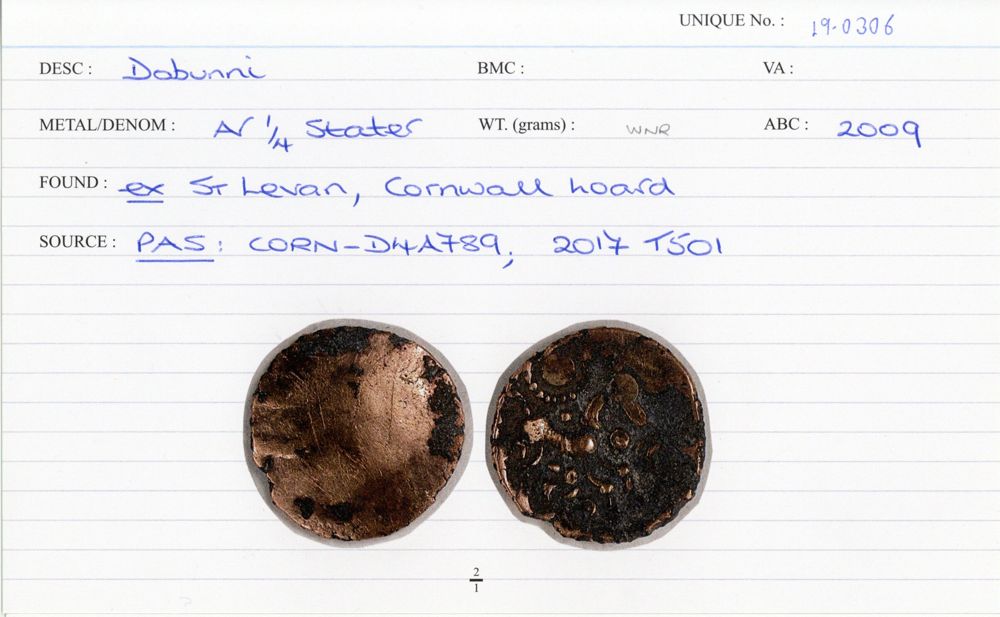 UNIQUE No. : 19-0306
DESC : Dobunni BMC : VA :
METAL/DENOM : AV 1/4 Stater WT. (grams) : WNR ABC : 2009
FOUND : ex St Levan, Cornwall hoard
SOURCE : PAS: CORN-D4A789; 2017 T501
2
1